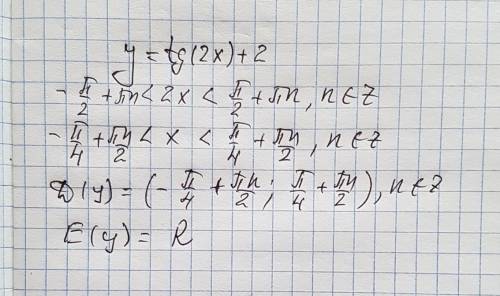 y = tg(2x) + 2
- π/2 + πn < 2x < π/2 + πn, n ∈ Z
- π/4 + πn/2 < x < π/4 + πn/2, n ∈ Z
D(y) = (- π/4 + πn/2; π/4 + πn/2), n ∈ Z
E(y) = R